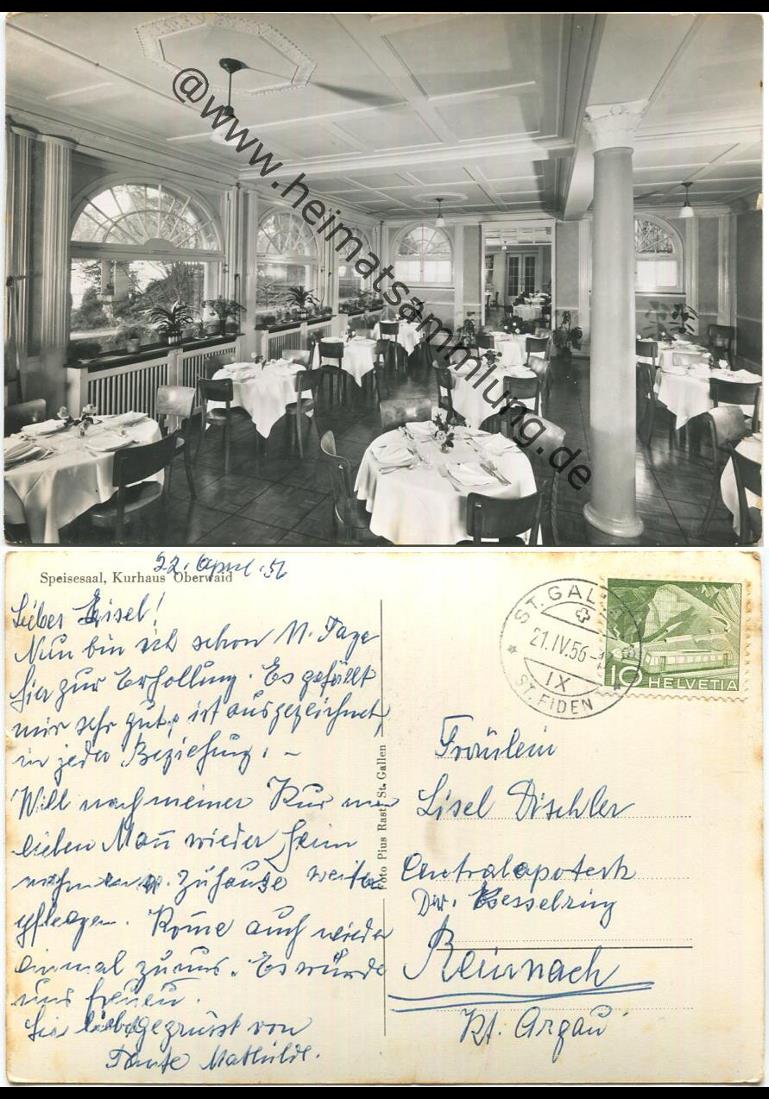 @www.heimatsammlung.de
Speisesaal, Kurhaus Oberwaid
22. April. 56
Liebes Lisel!
Nun bin ich schon 11. Tage
hier zur Erhollung. Es gefällt
mir sehr gut, ist ausgezeichnet
in jeder Beziehung. –
Will nach meiner Kur
lieben Mañ wieder heim
nehmen u. Zuhause weiter
pflegen. Kome auch wieder
einmal zu uns. Es würde
uns freuen.
Sei lieb gegrüsst von
Tante Mathilde.
Foto Pius Rast, St. Gallen
ST. GALLEN
21.IV.56
IX
ST. FIDEN
10 HELVETIA
Fräulein
Lisel Dischler
Centralapoteck
Dir. Besselring
Reinach
Kt. Argau